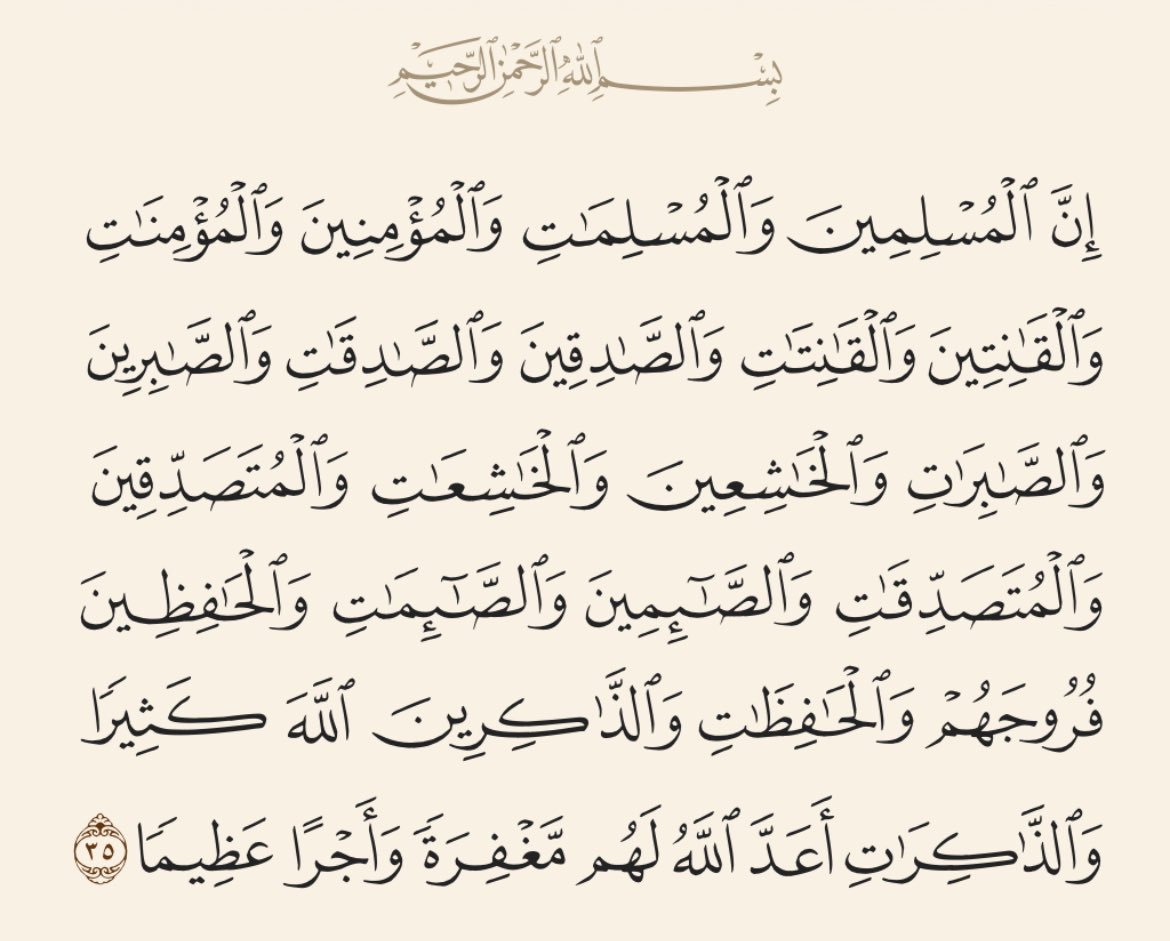 بِسۡمِ ٱللَّهِ ٱلرَّحۡمَٰنِ ٱلرَّحِيمِ
إِنَّ ٱلۡمُسۡلِمِينَ وَٱلۡمُسۡلِمَٰتِ وَٱلۡمُؤۡمِنِينَ وَٱلۡمُؤۡمِنَٰتِ
وَٱلۡقَٰنِتِينَ وَٱلۡقَٰنِتَٰتِ وَٱلصَّٰدِقِينَ وَٱلصَّٰدِقَٰتِ وَٱلصَّٰبِرِينَ
وَٱلصَّٰبِرَٰتِ وَٱلۡخَٰشِعِينَ وَٱلۡخَٰشِعَٰتِ وَٱلۡمُتَصَدِّقِينَ
وَٱلۡمُتَصَدِّقَٰتِ وَٱلصَّٰٓئِمِينَ وَٱلصَّٰٓئِمَٰتِ وَٱلۡحَٰفِظِينَ
فُرُوجَهُمۡ وَٱلۡحَٰفِظَٰتِ وَٱلذَّٰكِرِينَ ٱللَّهَ كَثِيرٗا
وَٱلذَّٰكِرَٰتِ أَعَدَّ ٱللَّهُ لَهُم مَّغۡفِرَةٗ وَأَجۡرًا عَظِيمٗا ٣٥